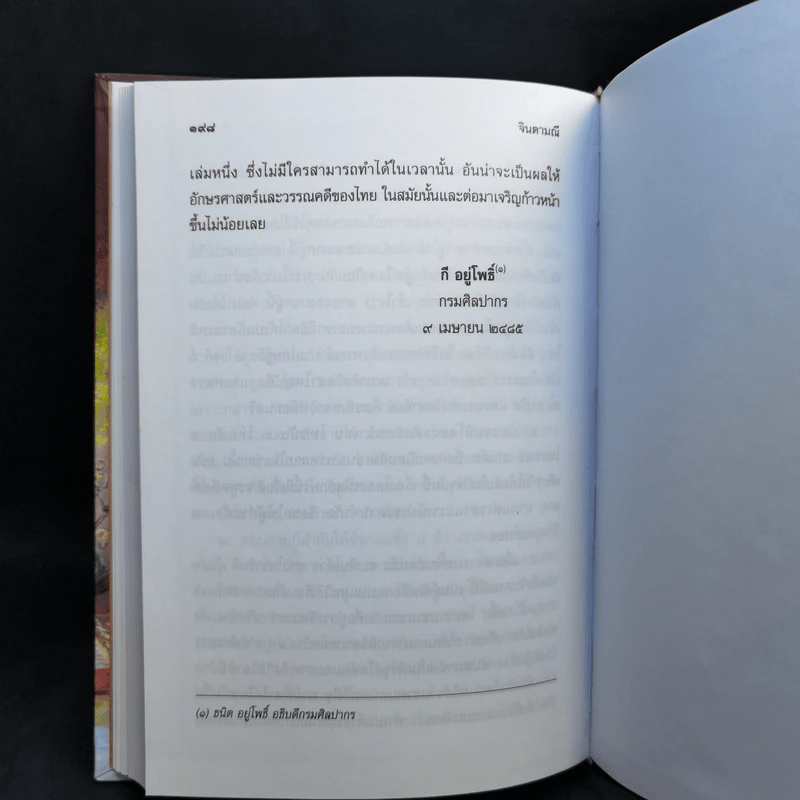 ๑๙๘ จินดามณี
เล่มหนึ่ง ซึ่งไม่มีใครสามารถทำได้ในเวลานั้น อันน่าจะเป็นผลให้
อักษรศาสตร์และวรรณคดีของไทย ในสมัยนั้นและต่อมาเจริญก้าวหน้า
ขึ้นไม่น้อยเลย
กี อยู่โพธิ์(๑)
กรมศิลปากร
๙ เมษายน ๒๔๘๕
(๑) ธนิต อยู่โพธิ์ อธิบดีกรมศิลปากร